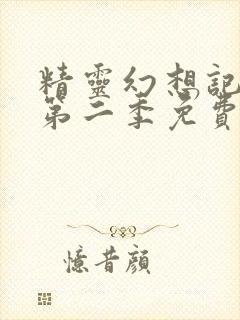 精靈幻想記
第二季免費
憶昔顏